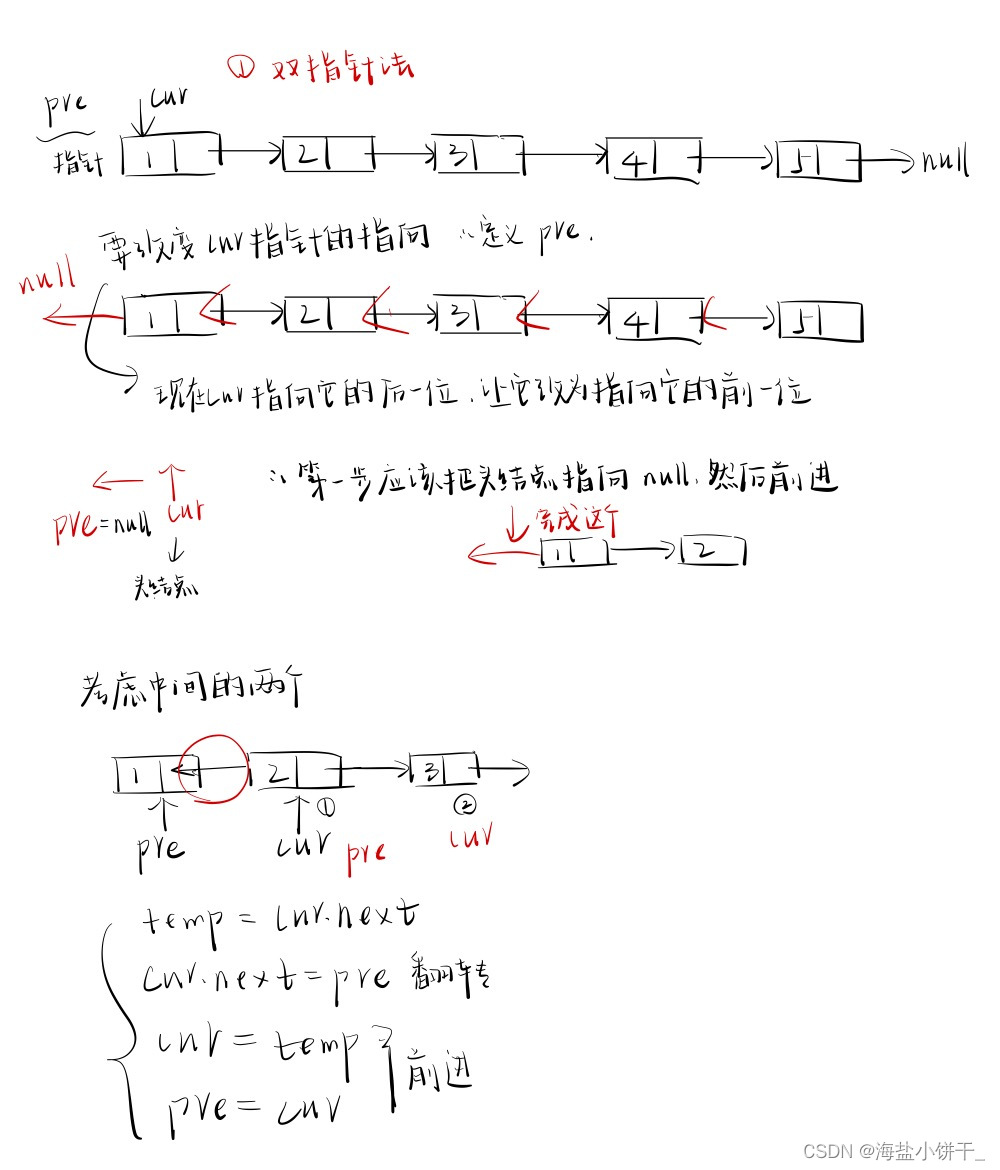 ① 双指针法
pre cur
指针 1 2 3 4 5 null
要改变cur指针的指向 ∴定义 pre.
null
1 2 3 4 5
现在cur指向它的后一位,让它改为指向它的前一位
∴第一步应该把头结点指向 null,然后前进
pre=null cur
完成这个
1 2
头结点
考虑中间的两个
1 2 3
① ②
pre cur pre cur
temp = cur.next
cur.next = pre 翻转
cur = temp
前进
pre = cur
CSDN @海盐小饼干_